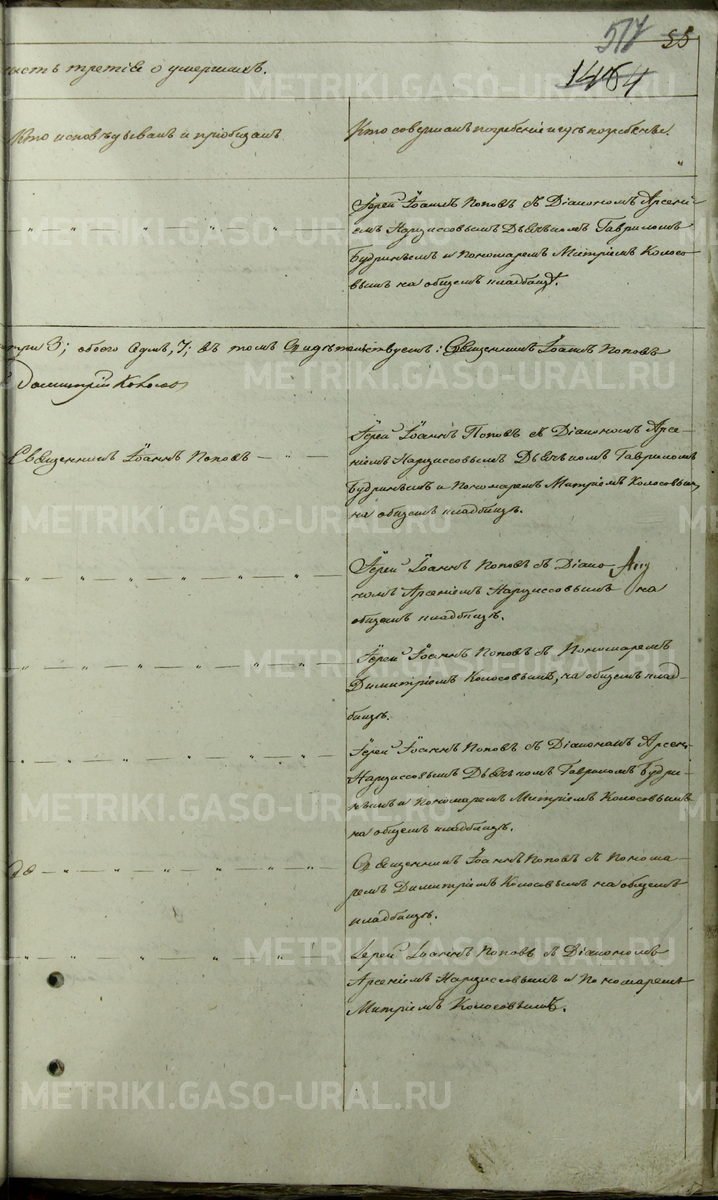 517 25
1464
часть третія о умершихъ.
Кто исповѣдывалъ и пріобщалъ
Кто совершалъ погребеніе и гдѣ погребены.
Іерей Іоаннъ Поповъ съ Діакономъ Арсені-
емъ Нарциссовымъ Дьячкомъ Гавриломъ
Будринымъ и Пономаремъ Митріемъ Колосо-
вымъ на общемъ кладбищѣ.
три 3; обоего семь, 7; въ томъ Свидѣтельствуемъ: Священникъ Іоаннъ Поповъ
Димитрій Колосовъ
Священникъ Іоаннъ Поповъ
Іерей Іоаннъ Поповъ съ Діакономъ Арсе-
ніемъ Нарциссовымъ Дьячкомъ Гавриломъ
Будринымъ и Пономаремъ Митріемъ Колосовымъ
на общемъ кладбищѣ.
Іерей Іоаннъ Поповъ съ Діако-
номъ Арсеніемъ Нарциссовымъ на
общемъ кладбищѣ.
Іерей Іоаннъ Поповъ съ Пономаремъ
Димитріемъ Колосовымъ, на общемъ клад-
бищѣ.
Іерей Іоаннъ Поповъ съ Діакономъ Арсен.
Нарциссовымъ Дьячкомъ Гавриломъ Будри-
нымъ и Пономаремъ Митріемъ Колосовымъ
на общемъ кладбищѣ.
Священникъ Іоаннъ Поповъ съ Понома-
ремъ Димитріемъ Колосовымъ на общемъ
кладбищѣ.
Іерей Іоаннъ Поповъ съ Діакономъ
Арсеніемъ Нарциссовымъ и Пономаремъ
Митріемъ Колосовымъ.
METRIKI.GASO-URAL.RU